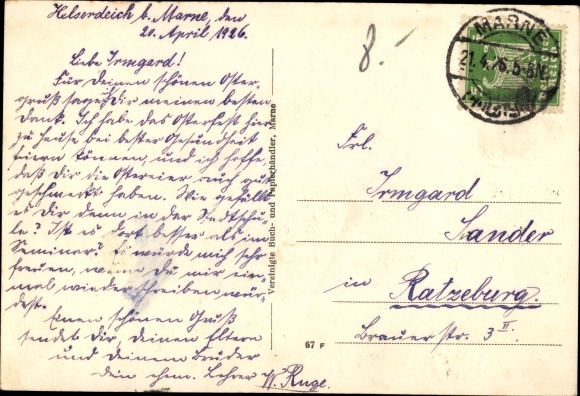 Helserdeich b. Marne, den
20. April 1926.
Liebe Irmgard!
Für Deinen schönen Oster-
gruß sage Dir meinen besten
Dank. Ich habe das Osterfest hier
zu Hause bei bester Gesundheit
feiern können, und ich hoffe,
daß Dir die Ostereier auch gut
geschmeckt haben. Wie gefällt
es Dir denn in der Stadtschu-
le? Ist es dort besser als im
Seminar? Es würde mich sehr
freuen, wenn du mir ein-
mal wieder schreiben wür-
dest.
Einen schönen Gruß
sendet Dir, deinen Eltern
und deinem Bruder
dein ehem. Lehrer W. Ruge.
Vereinigte Buch- und Papierhändler, Marne
67 F
8.-
MARNE
21.4.26.5-6N.
(HOLSTEIN)
Frl.
Irmgard
Sander
in Ratzeburg.
Brauerstr. 3 II.